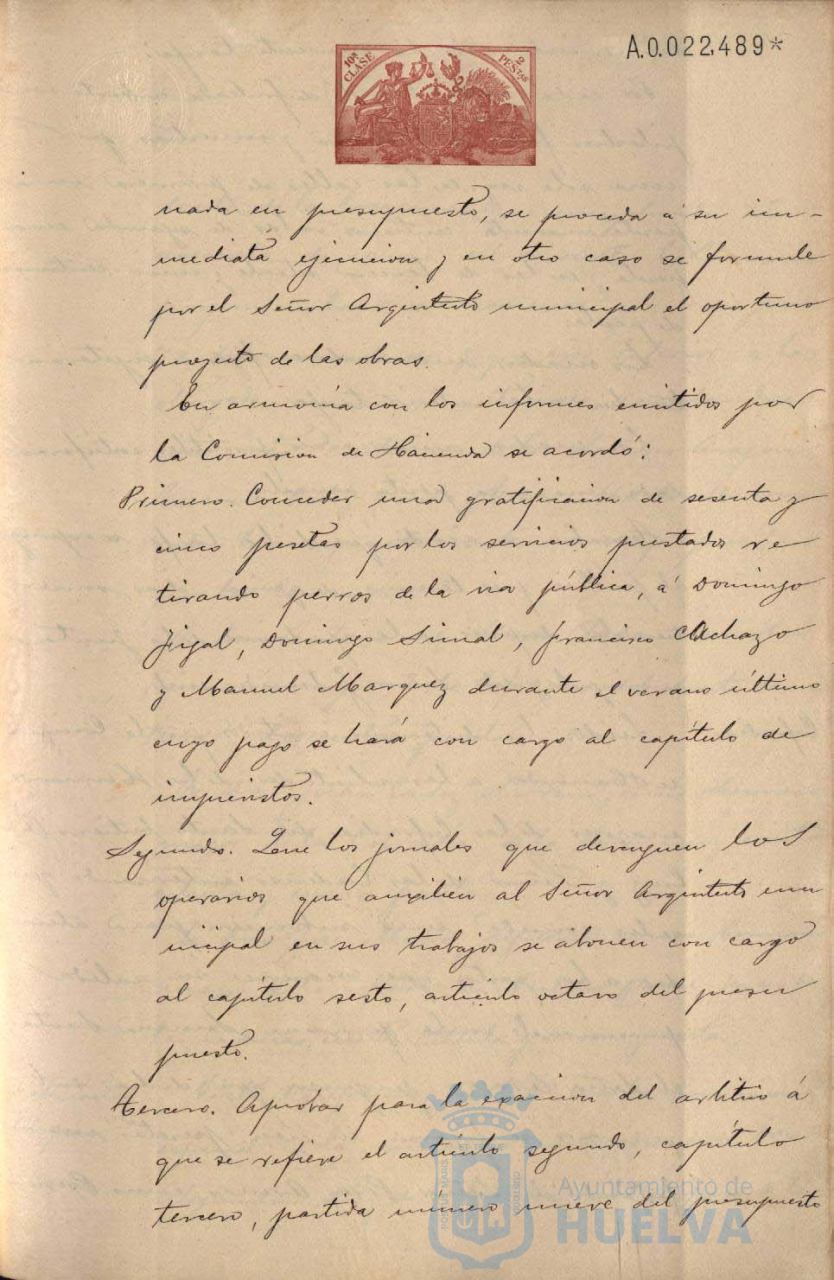 A.0.022,489*
10ª CLASE
2 PESTAS
nada en presupuesto, se proceda á su in-
mediata ejecucion y en otro caso se formule
por el Señor Arquitecto municipal el oportuno
proyecto de las obras.
En armonia con los informes emitidos por
la Comision de Hacienda se acordó:
Primero. Conceder una gratificacion de sesenta y
cinco pesetas por los servicios prestados re
tirando perros de la via pública, á Domingo
Domingo Simal, Francisco
y Manuel Marquez durante el verano último
cuyo pago se hará con cargo al capítulo de
imprevistos.
Segundo. Que los jornales que devenguen los
operarios que auxilien al Señor Arquitecto mu
nicipal en sus trabajos se abonen con cargo
al capítulo sesto, artículo octavo del presu
puesto.
Tercero. Aprobar para la exaccion del arbitrio á
que se refiere el artículo segundo, capítulo
tercero, partida número nueve del presupuesto
Ayuntamiento de
HUELVA